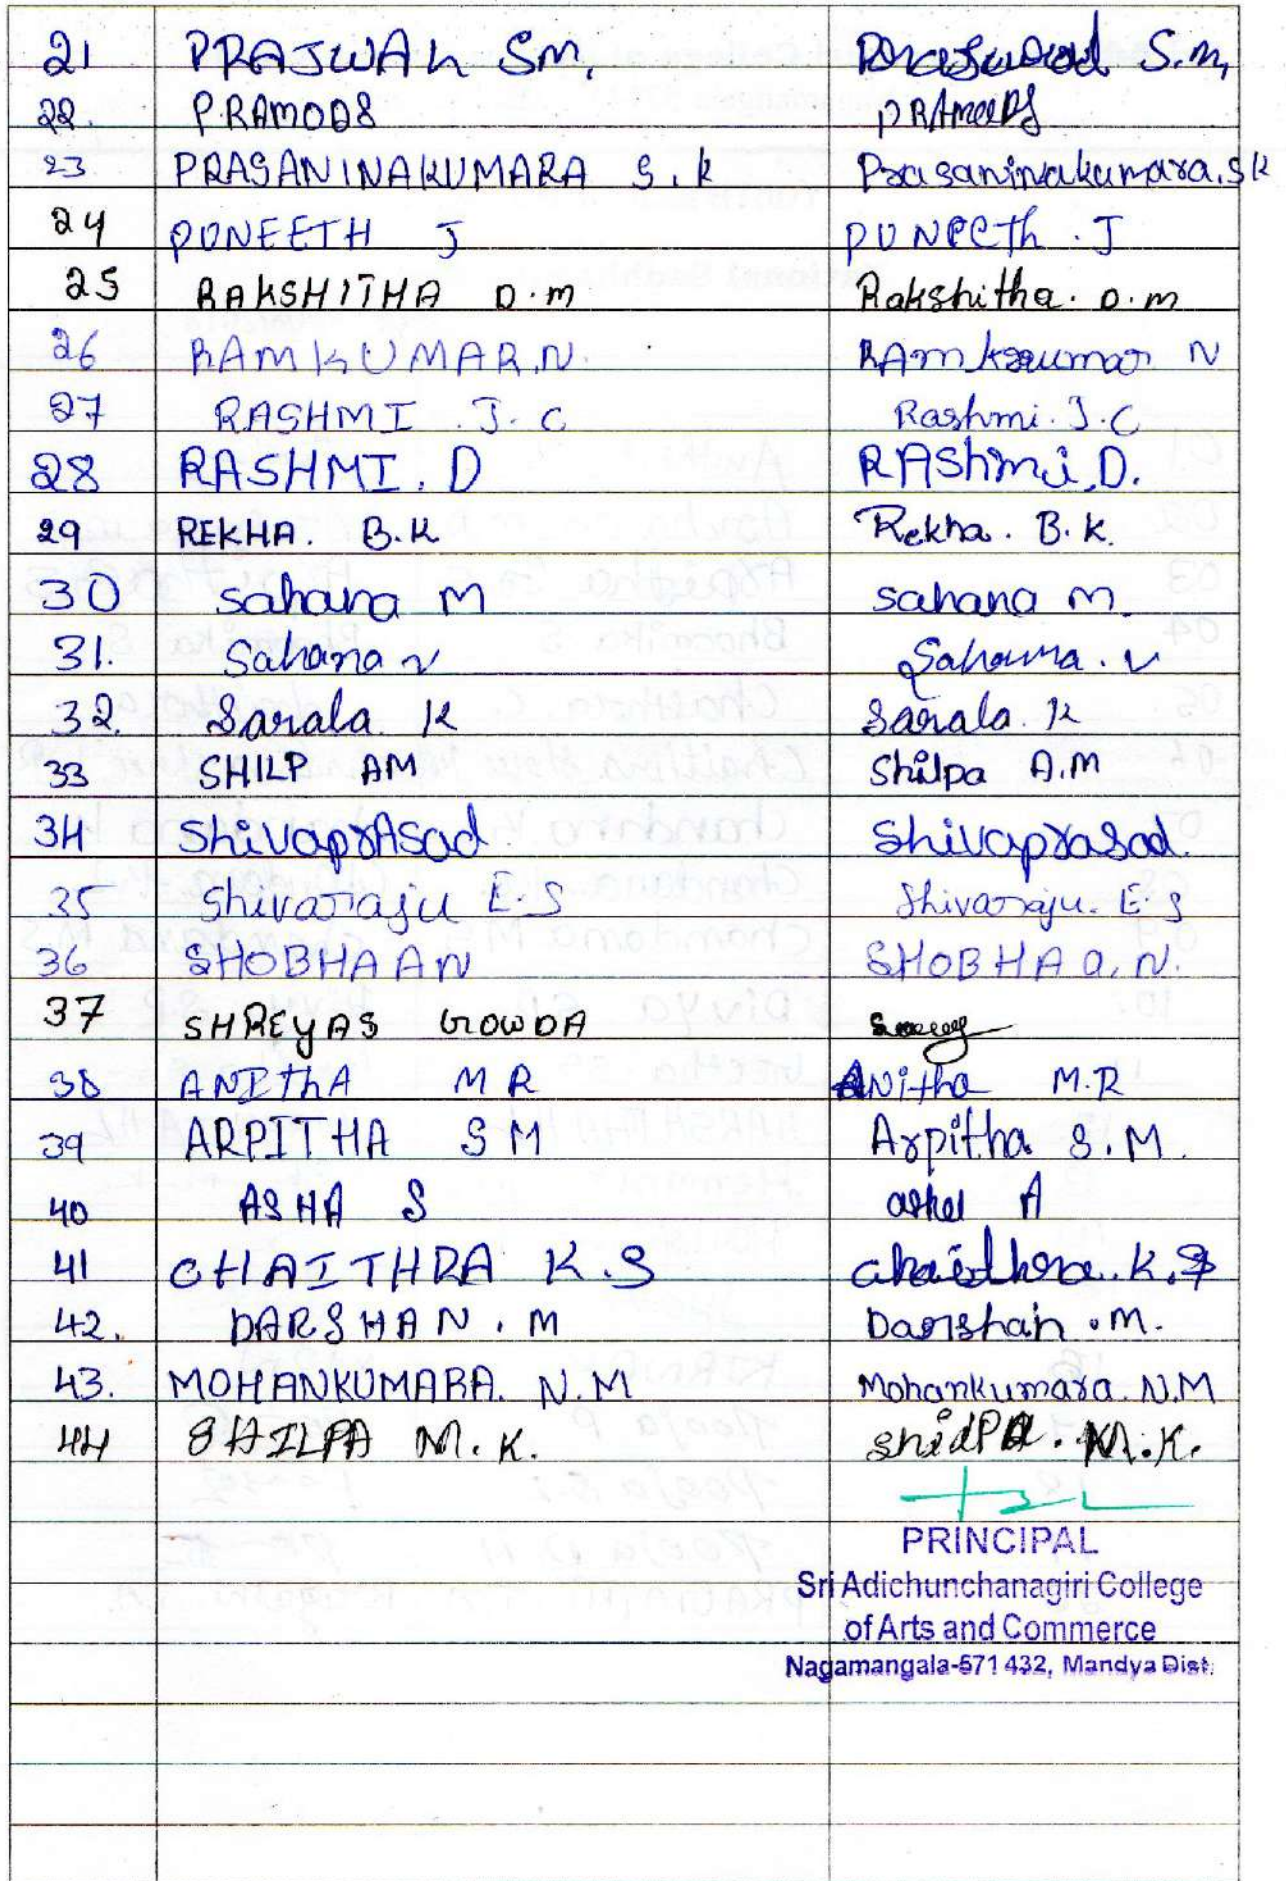 21 PRAJWAL SM. Prajwal S.M,
22. P.RAMODS PRAMODS
23 PRASANINAKUMARA S.K Prasaninakumara.SK
24 PUNEETH J PUNEETh . J
25 RAKSHITHA D.M Rakshitha. D.M
26 RAMKUMAR.N. RAmkumar N
27 RASHMI .J.C Rashmi.J.C
28 RASHMI. D RAShmi.D.
29 REKHA. B.K Rekha. B.K.
30 Sahana M Sahana m.
31. Sahana V Sahana. V
32. Sarala. K Sarala. K
33 SHILP AM Shilpa A.M
34 ShivaprAsad Shivaprasad.
35 Shivaraju E.S Shivaraju. E.S
36 SHOBHA AN SHOBHA A.N.
37 SHREYAS GOWDA
38 ANIThA M R ANitha M.R
39 ARPITHA S M Arpitha S.M.
40 ASHA S A
41 CHAITHRA K.S Chaithra.K.S
42. DARSHAN . M Darshan .M.
43. MOHANKUMARA. N.M Mohankumara. N.M
44 SHILPA M.K. ShilPA. M.K.
PRINCIPAL
Sri Adichunchanagiri College
of Arts and Commerce
Nagamangala-571 432, Mandya Dist.